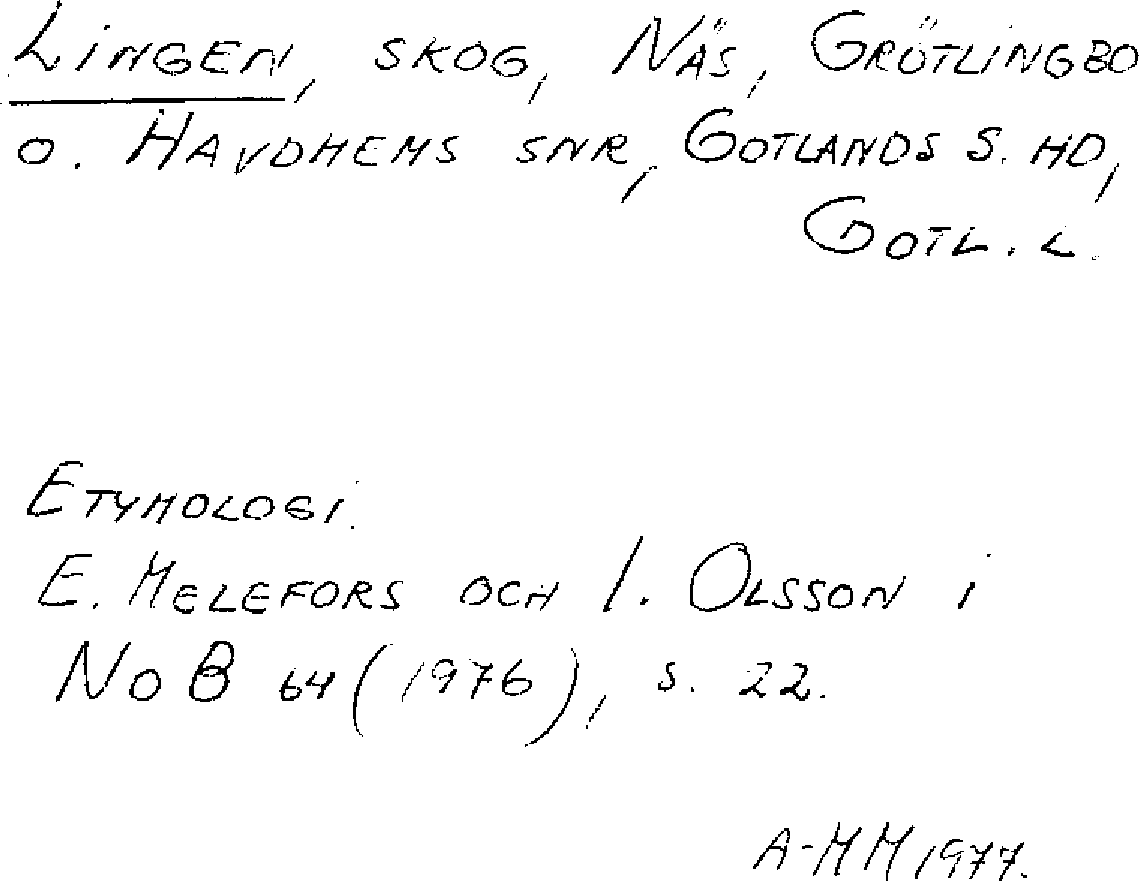 Lingen, skog, Näs, Grötlingbo
o. Havdhems snr, Gotlands S. hd,
Gotl. l.
Etymologi.
E. Melefors och I. Olsson i
NoB 64 (1976), s. 22.
A-MM 1977.